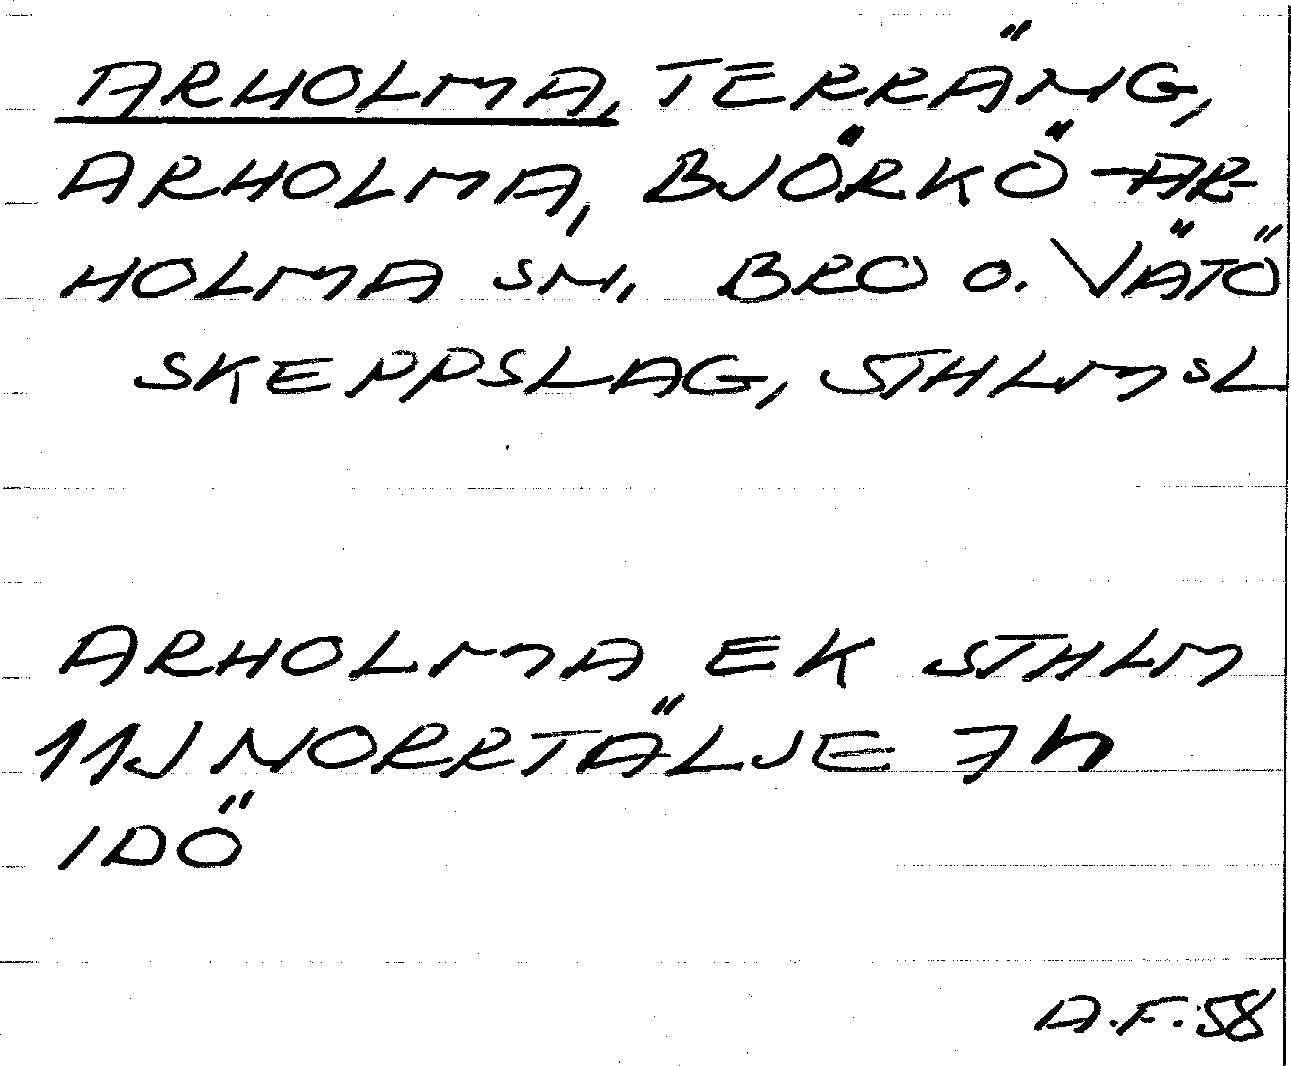 ARHOLMA, TERRÄNG,
ARHOLMA, BJÖRKÖ-AR-
HOLMA SN, BRO O. VÄTÖ
SKEPPSLAG, STHLMSL
ARHOLMA EK STHLM
11J NORRTÄLJE 7h
IDÖ
A.F.58